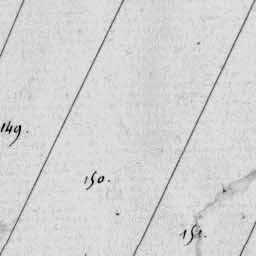 149.
150.
151.